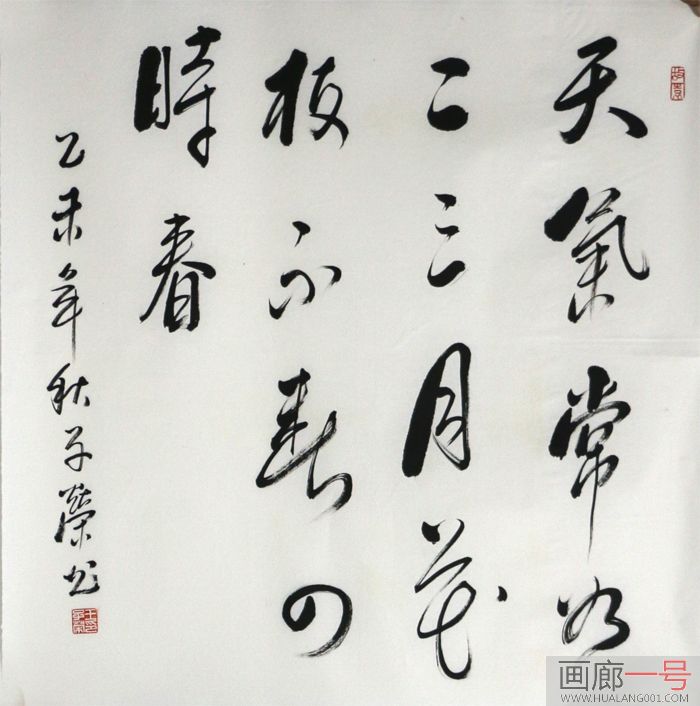 天氣常如
二三月花
枝不斷四
時春
乙未年秋子榮书
画廊一号
WWW.HUALANG001.COM